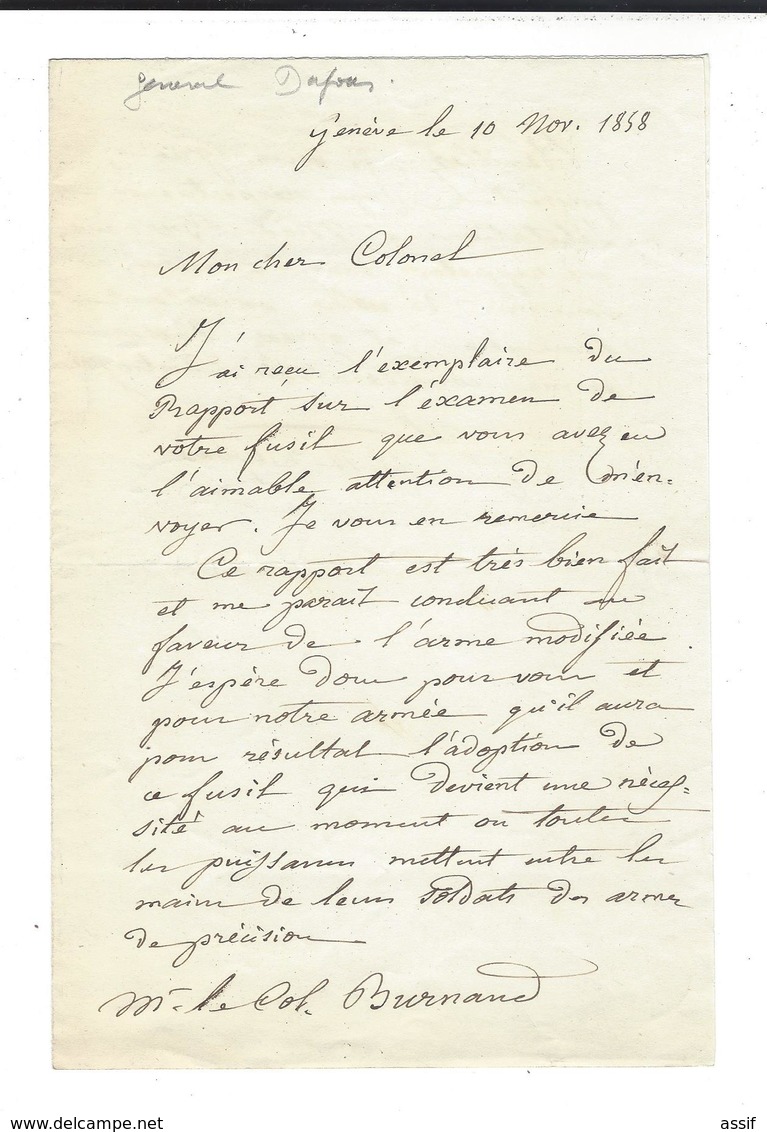 General Dufour.
Genève le 10 Nov. 1858
Mon cher Colonel
J'ai reçu l'exemplaire du
Rapport sur l'éxamen de
votre fusil que vous avez eu
l'aimable attention de m'en-
voyer. Je vous en remercie
Ce rapport est très bien fait
et me parait concluant en
faveur de l'arme modifiée.
J'espère donc pour vous et
pour notre armée qu'il aura
pour résultat l'adoption de
ce fusil qui devient une néces-
sité au moment ou toutes
les puissances mettent entre les
mains de leurs soldats des armes
de précision
Mr. le Col. Burnand
www.delcampe.net
assif